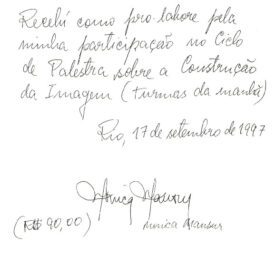 Recebi como pro-labore pela
minha participação no Ciclo
de Palestra sobre a Construção
da Imagem (turmas da manhã)
Rio, 17 de setembro de 1997
Monica Mansur
(R$ 90,00) Monica Mansur